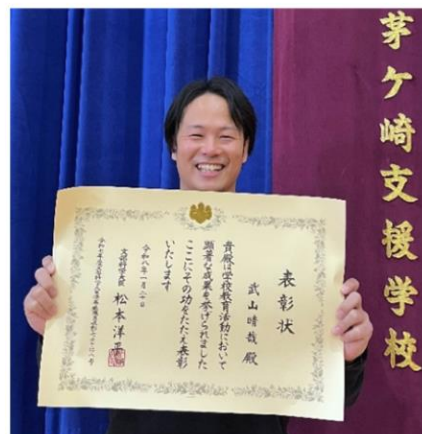 茅ケ崎支援学校
表彰状
武山晴哉 殿
貴殿は学校教育活動において
顕著な成果を挙げられました
ここにその功をたたえ表彰
いたします
令和八年一月二十日
文部科学大臣 松本洋平